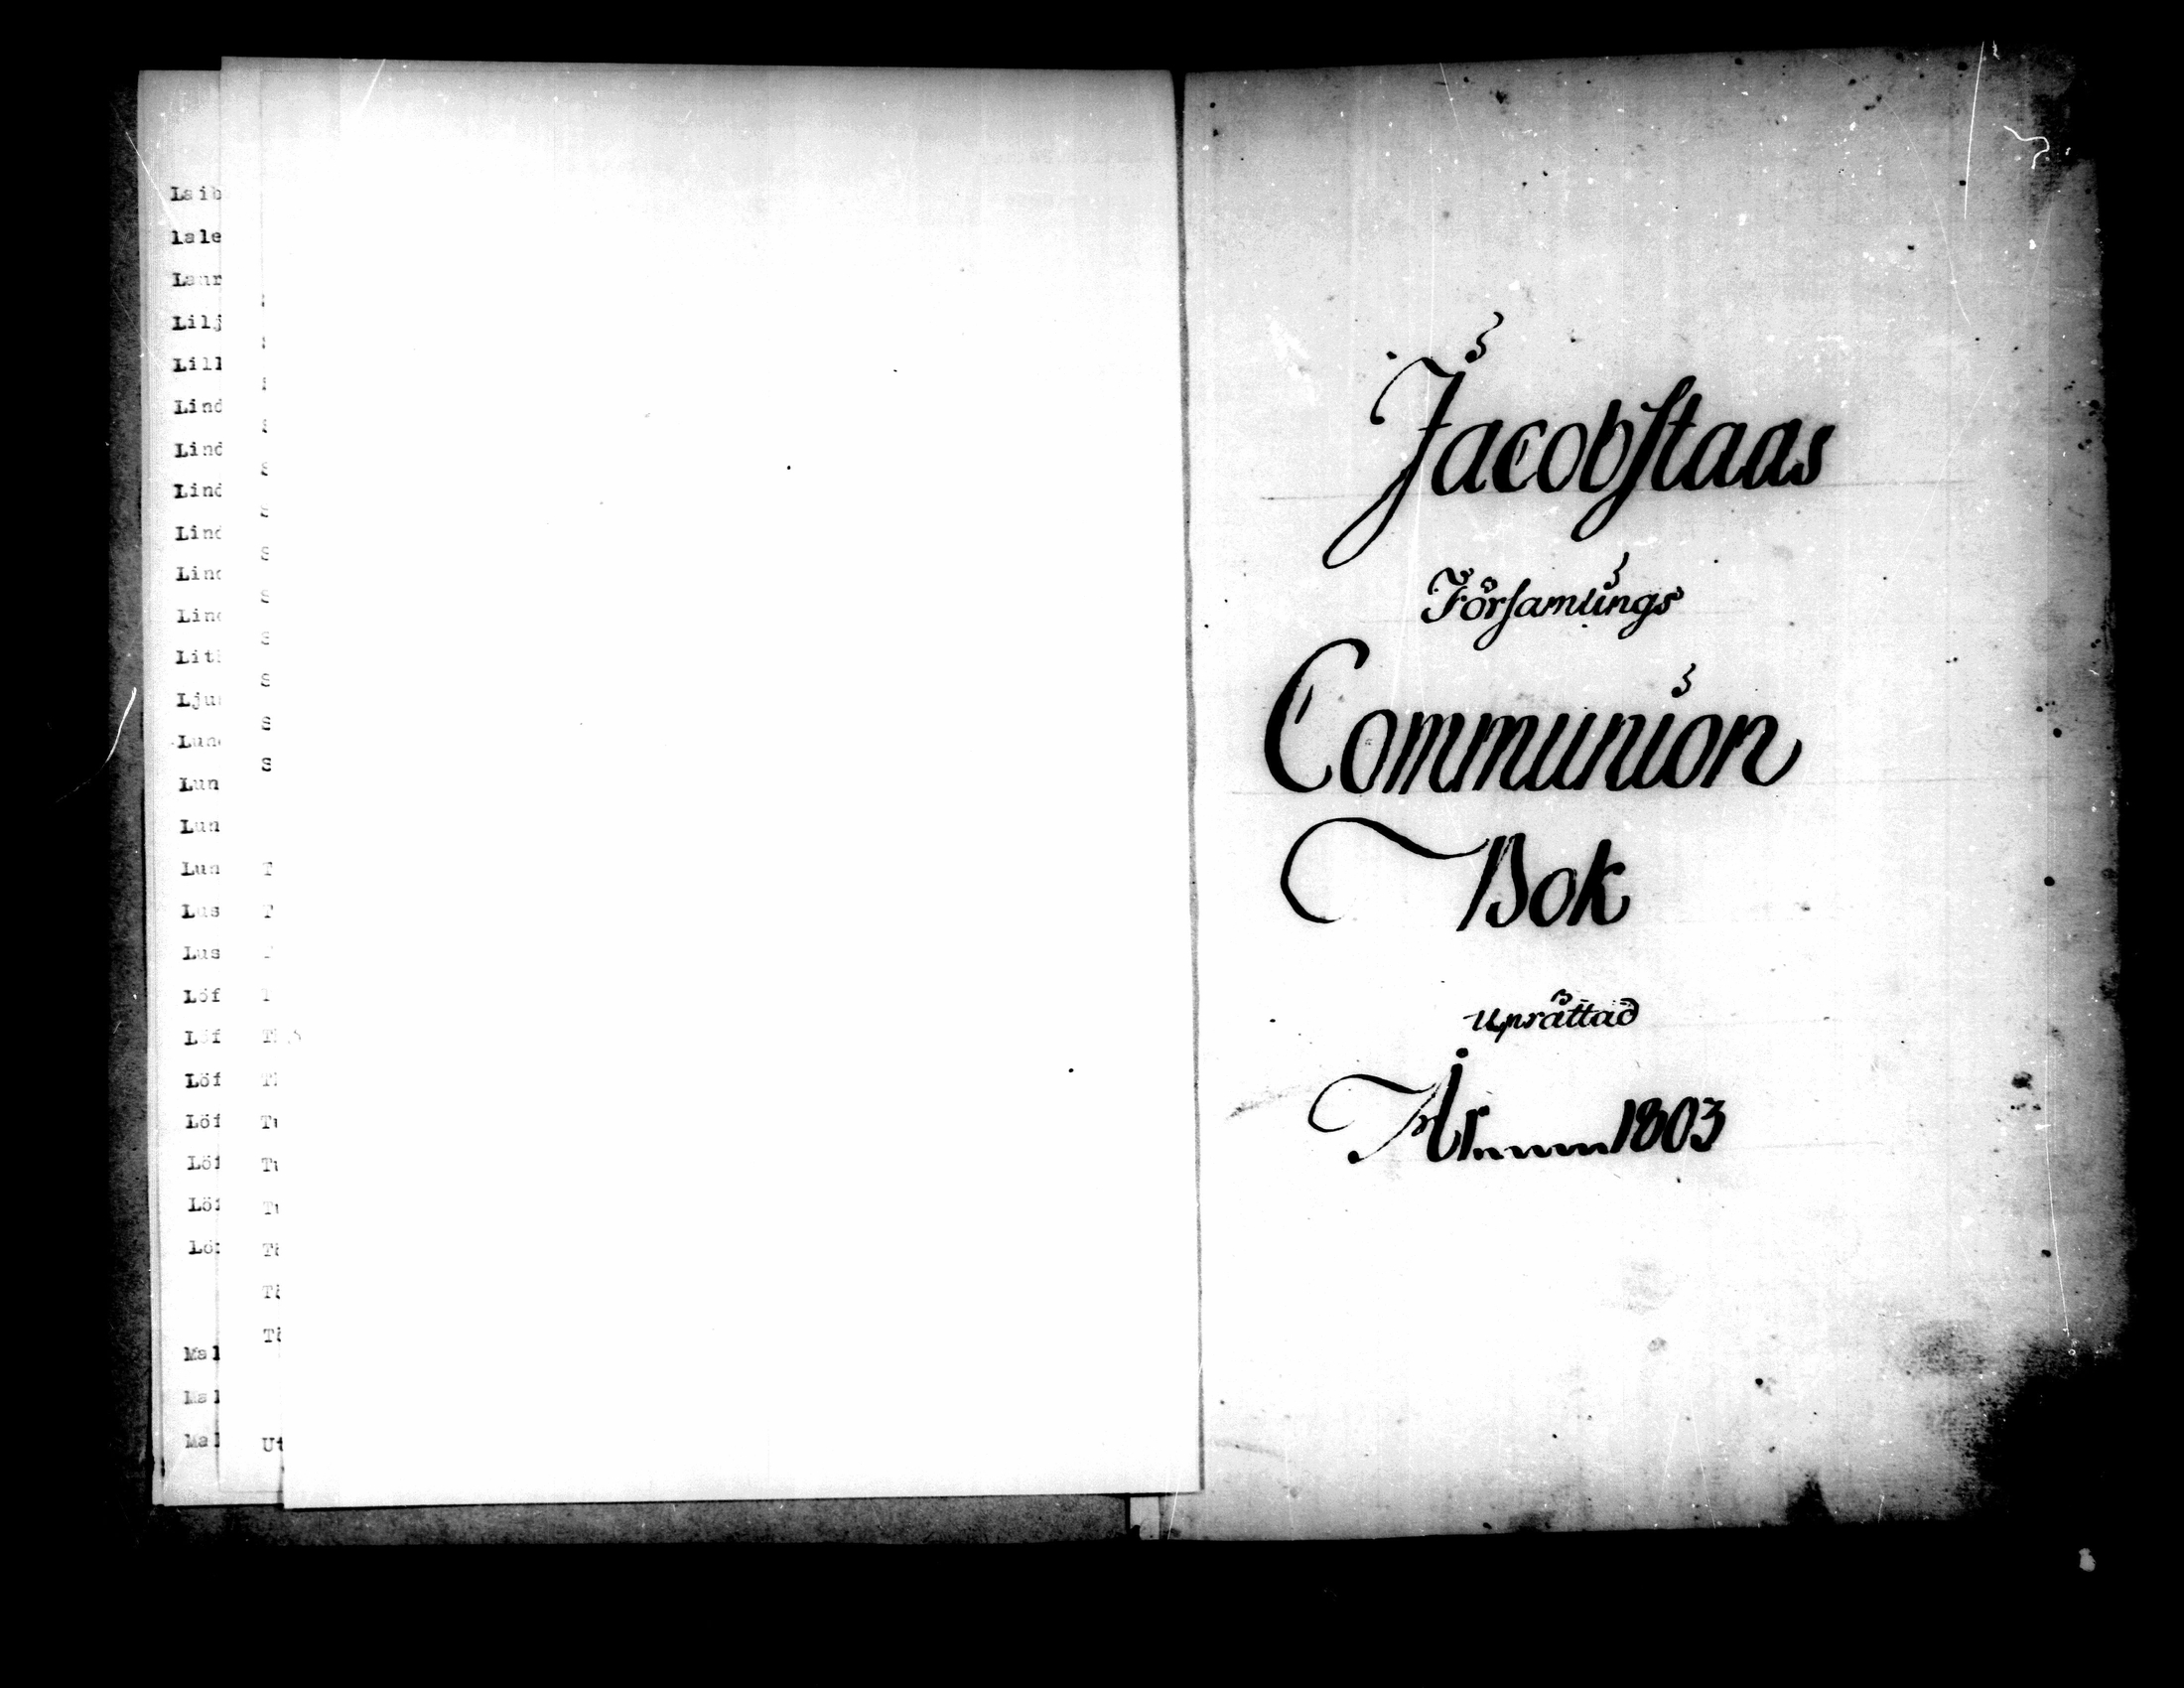 Laib
lale
Laur
Lilj
Lill
Lind
Lind
Lind
Lind
Lind
Lind
Lit
Lju
Lun
Lun
Lun
Lun
Lus
Lus
Löf
Löf
Löf
Löf
Löf
Löf
Löf
Mal
Mal
Mal
S
S
S
S
S
S
S
S
S
T
T
T
T
T
Tu
Tu
Tu
Ut
Jacobstaas
Församlings
Communion
Bok
Uprättad
År 1803